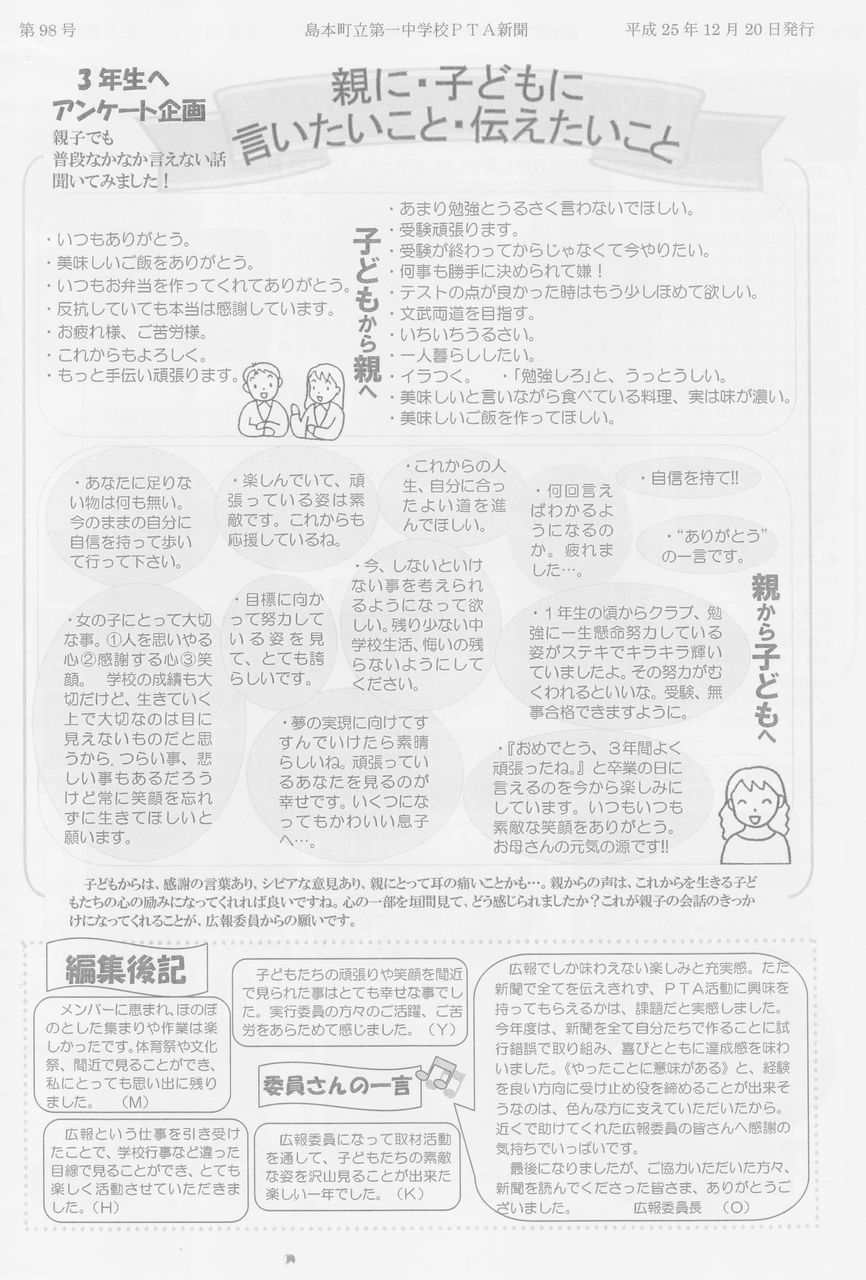 第98号　島本町立第一中学校PTA新聞　平成25年12月20日発行
3年生へ
アンケート企画
親子でも
普段なかなか言えない話
聞いてみました！
親に・子どもに
言いたいこと・伝えたいこと
・いつもありがとう。
・美味しいご飯をありがとう。
・いつもお弁当を作ってくれてありがとう。
・反抗していても本当は感謝しています。
・お疲れ様、ご苦労様。
・これからもよろしく。
・もっと手伝い頑張ります。
子どもから親へ
・あまり勉強とうるさく言わないでほしい。
・受験頑張ります。
・受験が終わってからじゃなくて今やりたい。
・何事も勝手に決められて嫌！
・テストの点が良かった時はもう少しほめて欲しい。
・文武両道を目指す。
・いちいちうるさい。
・一人暮らししたい。
・イラつく。　・「勉強しろ」と、うっとうしい。
・美味しいと言いながら食べている料理、実は味が濃い。
・美味しいご飯を作ってほしい。
・あなたに足りな
い物は何も無い。
今のままの自分に
自信を持って歩い
て行って下さい。
・楽しんでいて、頑
張っている姿は素
敵です。これからも
応援しているね。
・これからの人
生、自分に合っ
たよい道を進
んでほしい。
・何回言え
ばわかるよ
うになるの
か。疲れま
した…。
・自信を持て!!
・“ありがとう”
の一言です。
親から子どもへ
・女の子にとって大切
な事。①人を思いやる
心②感謝する心③笑
顔。　学校の成績も大
切だけど、生きていく
上で大切なのは目に
見えないものだと思
うから。つらい事、悲
しい事もあるだろう
けど常に笑顔を忘れ
ずに生きてほしいと
願います。
・目標に向か
って努力して
いる姿を見
て、とても誇
らしいです。
・今、しないといけ
ない事を考えられ
るようになって欲
しい。残り少ない中
学校生活、悔いの残
らないようにして
ください。
・1年生の頃からクラブ、勉
強に一生懸命努力している
姿がステキでキラキラ輝い
ていましたよ。その努力がむ
くわれるといいな。受験、無
事合格できますように。
・夢の実現に向けてす
すんでいけたら素晴
らしいね。頑張ってい
るあなたを見るのが
幸せです。いくつにな
ってもかわいい息子
へ…。
・『おめでとう、3年間よく
頑張ったね。』と卒業の日に
言えるのを今から楽しみに
しています。いつもいつも
素敵な笑顔をありがとう。
お母さんの元気の源です!!
子どもからは、感謝の言葉あり、シビアな意見あり、親にとって耳の痛いことかも…。親からの声は、これからを生きる子ど
もたちの心の励みになってくれれば良いですね。心の一部を垣間見て、どう感じられましたか？これが親子の会話のきっか
けになってくれることが、広報委員からの願いです。
編集後記
メンバーに恵まれ、ほのぼ
のとした集まりや作業は楽
しかったです。体育祭や文化
祭、間近で見ることができ、
私にとっても思い出に残り
ました。　（M）
子どもたちの頑張りや笑顔を間近
で見られた事はとても幸せな事でし
た。実行委員の方々のご活躍、ご苦
労をあらためて感じました。（Y）
委員さんの一言
広報という仕事を引き受け
たことで、学校行事など違った
目線で見ることができ、とても
楽しく活動させていただきま
した。（H）
広報委員になって取材活動
を通して、子どもたちの素敵
な姿を沢山見ることが出来た
楽しい一年でした。（K）
広報でしか味わえない楽しみと充実感。ただ
新聞で全てを伝えきれず、PTA活動に興味を
持ってもらえるかは、課題だと実感しました。
今年度は、新聞を全て自分たちで作ることに試
行錯誤で取り組み、喜びとともに達成感を味わ
いました。《やったことに意味がある》と、経験
を良い方向に受け止め役を締めることが出来そ
うなのは、色んな方に支えていただいたから。
近くで助けてくれた広報委員の皆さんへ感謝の
気持ちでいっぱいです。
最後になりましたが、ご協力いただいた方々、
新聞を読んでくださった皆さま、ありがとうご
ざいました。　広報委員長　（O）